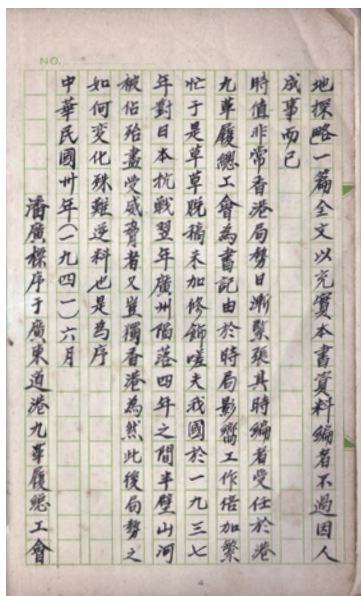 地探略」一篇全文以充實本書資料編者不過因人
成事而已
時值非常香港局勢日漸緊張其時編者受任於港
九革履總工會為書記由於時局影嚮工作倍加繁
忙于是草草脫稿未加修飾嗟夫我國於一九三七
年對日本抗戰翌年廣州陷落四年之間半壁山河
被佔殆盡受威脅者又豈獨香港為然此後局勢之
如何变化殊難逆料也是為序
中華民國卅年(一九四一)六月
潘廣標序于廣東道港九革履總工會
NO.